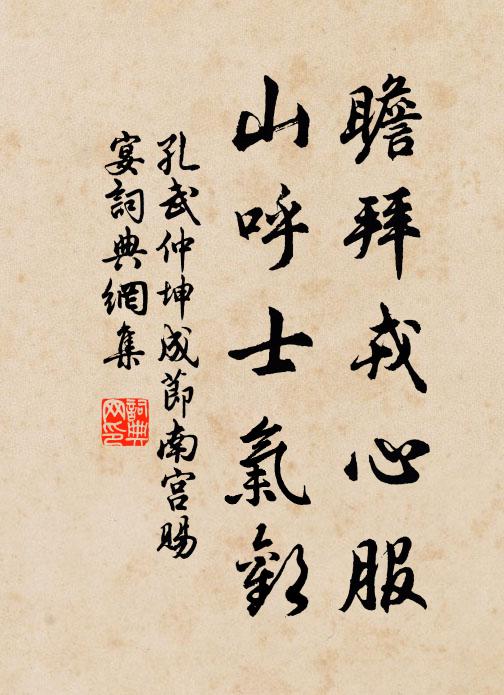 瞻拜戎心服
山呼士氣歡
孔武仲坤成節南宮賜
宴詞典網集
詞典
网印